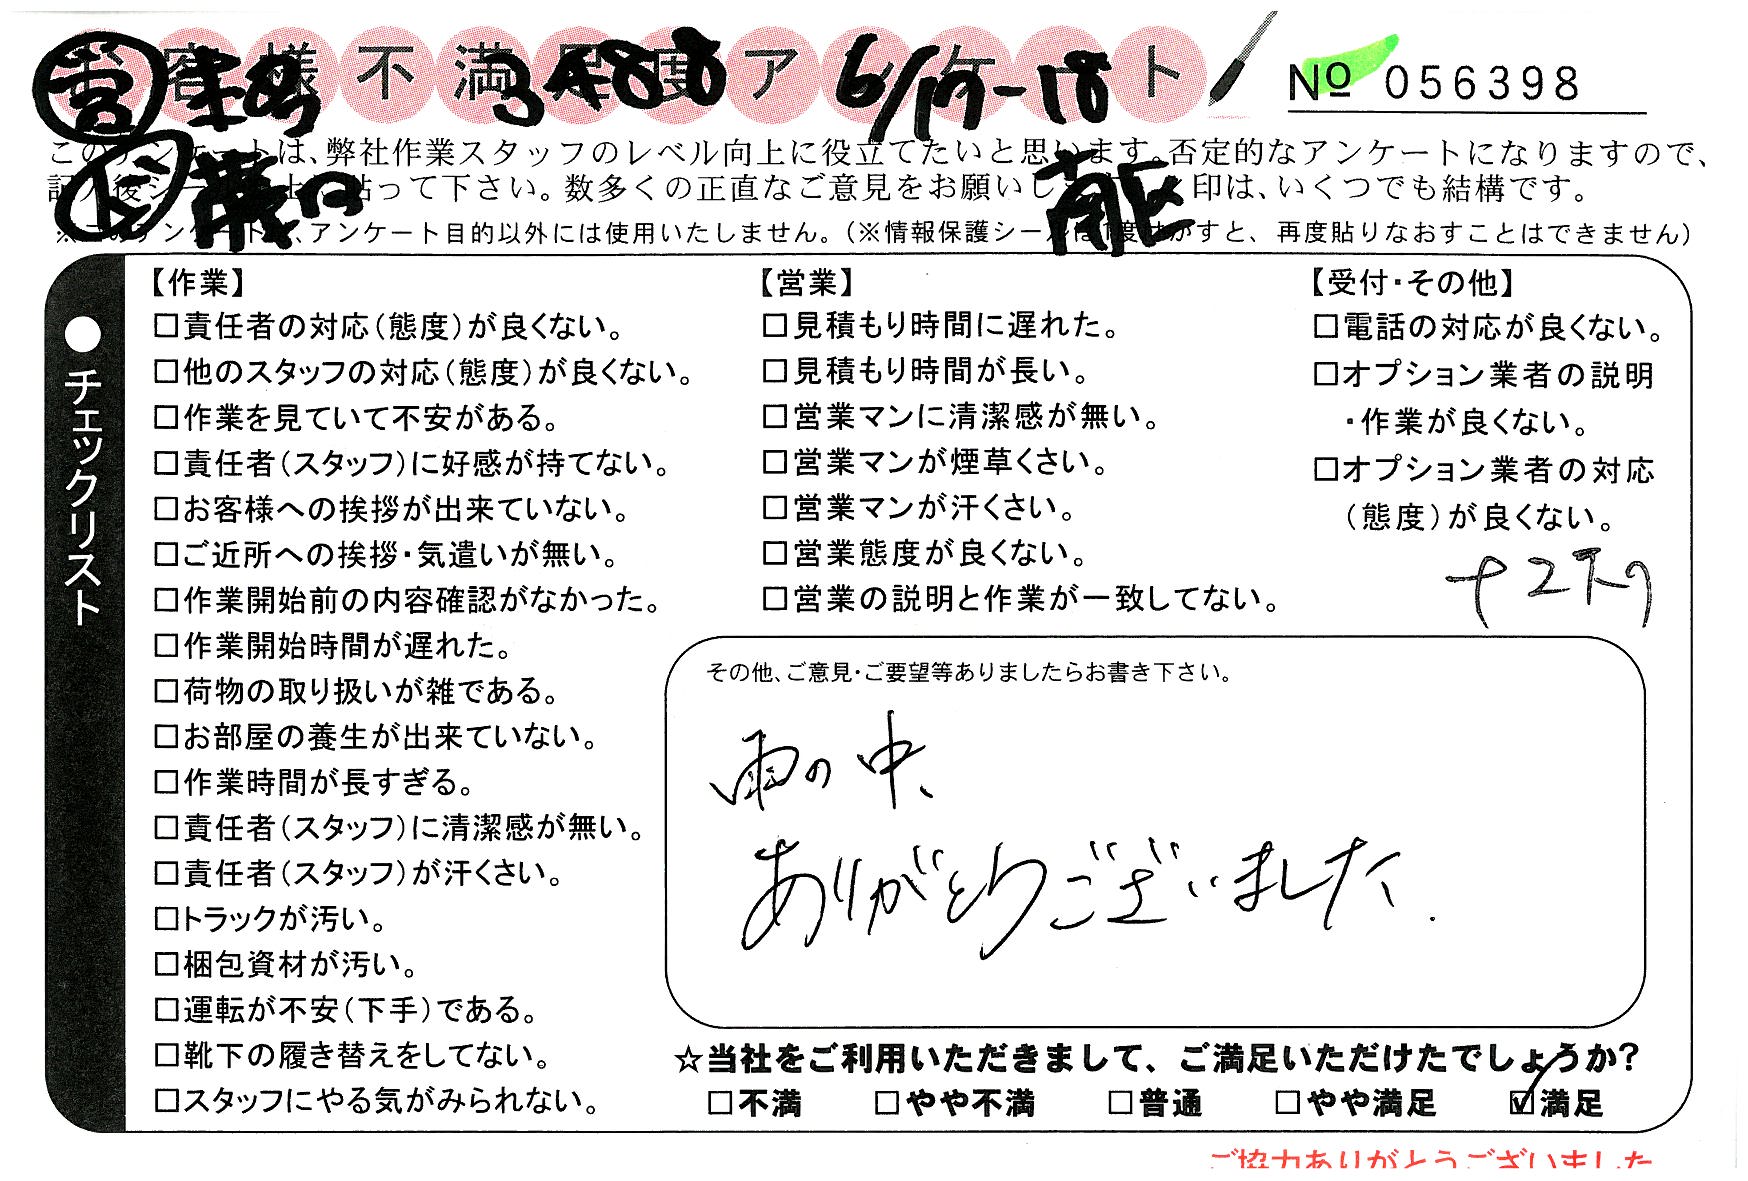 お客様不満足度アンケート
No 056398
3488 6/17-18
このアンケートは、弊社作業スタッフのレベル向上に役立てたいと思います。否定的なアンケートになりますので、
記入後シール 貼って下さい。数多くの正直なご意見をお願いし 印は、いくつでも結構です。
南区
※このアンケート 、アンケート目的以外には使用いたしません。(※情報保護シールは1度はがすと、再度貼りなおすことはできません)
●チェックリスト
【作業】
□責任者の対応(態度)が良くない。
□他のスタッフの対応(態度)が良くない。
□作業を見ていて不安がある。
□責任者(スタッフ)に好感が持てない。
□お客様への挨拶が出来ていない。
□ご近所への挨拶・気遣いが無い。
□作業開始前の内容確認がなかった。
□作業開始時間が遅れた。
□荷物の取り扱いが雑である。
□お部屋の養生が出来ていない。
□作業時間が長すぎる。
□責任者(スタッフ)に清潔感が無い。
□責任者(スタッフ)が汗くさい。
□トラックが汚い。
□梱包資材が汚い。
□運転が不安(下手)である。
□靴下の履き替えをしてない。
□スタッフにやる気がみられない。
【営業】
□見積もり時間に遅れた。
□見積もり時間が長い。
□営業マンに清潔感が無い。
□営業マンが煙草くさい。
□営業マンが汗くさい。
□営業態度が良くない。
□営業の説明と作業が一致してない。
【受付・その他】
□電話の対応が良くない。
□オプション業者の説明
・作業が良くない。
□オプション業者の対応
(態度)が良くない。
その他、ご意見・ご要望等ありましたらお書き下さい。
雨の中、
ありがとうございました.
☆当社をご利用いただきまして、ご満足いただけたでしょうか?
□不満 □やや不満 □普通 □やや満足 ☑満足
ご協力ありがとうございました